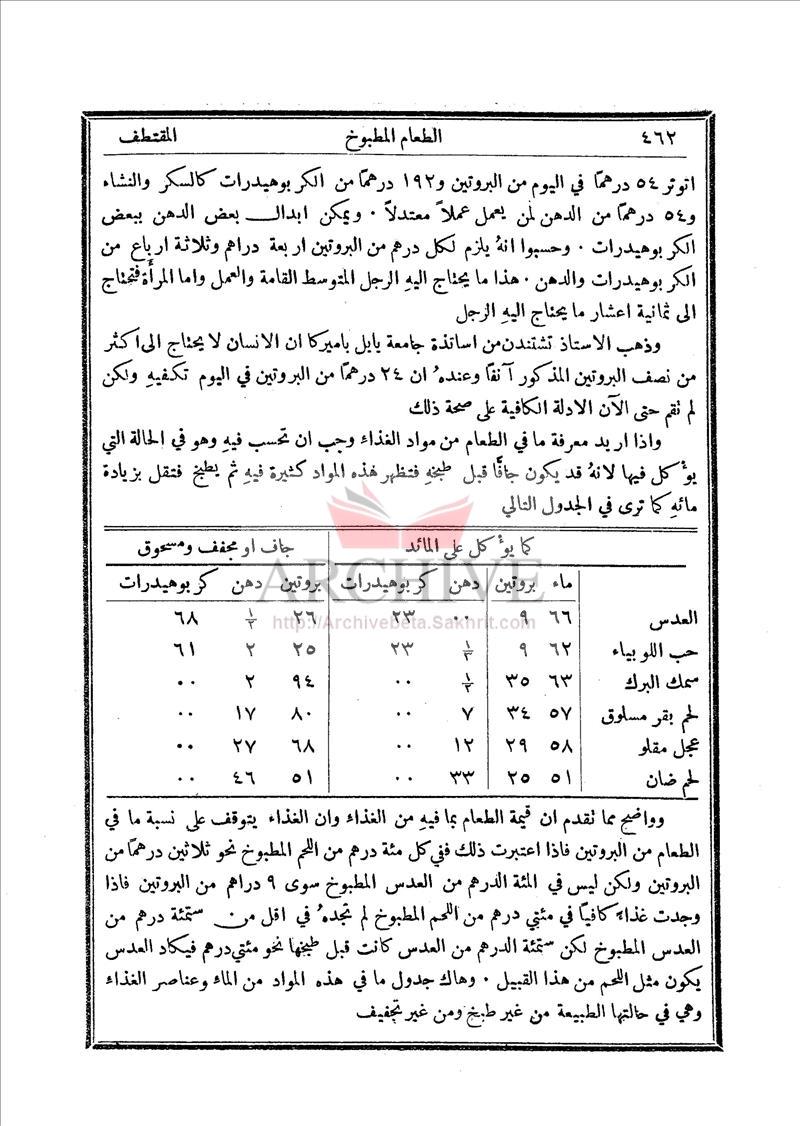 ٤٦٢ الطعام المطبوخ المقتطف
اتوتر ٥٤ درهمًا في اليوم من البروتين و١٩٢ درهمًا من الكربوهيدرات كالسكر والنشاء
و٥٤ درهمًا من الدهن لمن يعمل عملاً معتدلاً . ويمكن ابدال بعض الدهن ببعض
الكربوهيدرات . وحسبوا انهُ يلزم لكل درهم من البروتين اربعة دراهم وثلاثة ارباع من
الكربوهيدرات والدهن . هذا ما يحتاج اليهِ الرجل المتوسط القامة والعمل واما المرأة فتحتاج
الى ثمانية اعشار ما يحتاج اليهِ الرجل
وذهب الاستاذ تشتندن من اساتذة جامعة يايل باميركا ان الانسان لا يحتاج الى اكثر
من نصف البروتين المذكور آنفًا وعندهُ ان ٢٤ درهمًا من البروتين في اليوم تكفيهِ ولكن
لم نقم حتى الآن الادلة الكافية على صحة ذلك
واذا اريد معرفة ما في الطعام من مواد الغذاء وجب ان تحسب فيهِ وهو في الحالة التي
يوءكل فيها لانهُ قد يكون جافًا قبل طبخهِ فتظهر هذه المواد كثيرة فيهِ ثم يطبخ فتقل بزيادة
مائهِ كما ترى في الجدول التالي
كما يوءكل على المائد جاف او مجفف ومسحوق
ماء بروتين دهن كربوهيدرات بروتين دهن كربوهيدرات
العدس ٦٦ ٩ ٠٠ ٢٣ ٢٦ ½ ٦٨
حب اللوبياء ٦٢ ٩ ½ ٢٣ ٢٥ ٢ ٦١
سمك البرك ٦٣ ٣٥ ½ ٠٠ ٩٤ ٢ ٠٠
لحم بقر مسلوق ٥٧ ٣٤ ٧ ٠٠ ٨٠ ١٧ ٠٠
عجل مقلو ٥٨ ٢٩ ١٢ ٠٠ ٦٨ ٢٧ ٠٠
لحم ضان ٥١ ٢٥ ٣٣ ٠٠ ٥١ ٤٦ ٠٠
وواضح مما ثقدم ان قيمة الطعام بما فيهِ من الغذاء وان الغذاء يتوقف على نسبة ما في
الطعام من البروتين فاذا اعتبرت ذلك ففي كل مئة درهم من اللحم المطبوخ نحو ثلاثين درهمًا من
البروتين ولكن ليس في المئة الدرهم من العدس المطبوخ سوى ٩ دراهم من البروتين فاذا
وجدت غذاءً كافيًا في مئتي درهم من اللحوم المطبوخ لم تجدهُ في اقل من ستمئة درهم من
العدس المطبوخ لكن ستمئة الدرهم من العدس كانت قبل طبخها نحو مئتي درهم فيكاد العدس
يكون مثل اللحم من هذا القبيل . وهاك جدول ما في هذه المواد من الماء وعناصر الغذاء
وهي في حالتها الطبيعة من غير طبخ ومن غير تجفيف
ARCHIVE
http://Archivebeta.Sakhrit.com